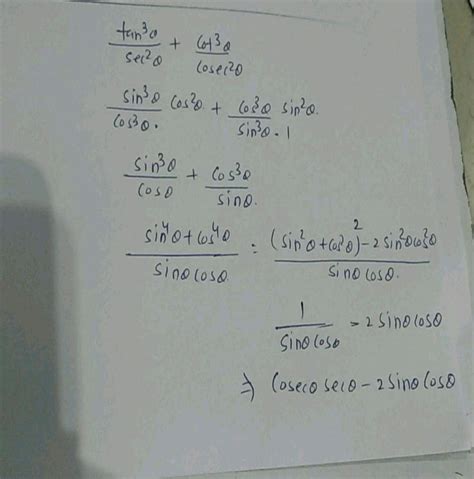 tan³θ/sec²θ + cot³θ/cosec²θ
sin³θ/cos³θ. cos²θ + cos³θ/sin³θ·1 sin²θ.
sin³θ/cosθ + cos³θ/sinθ.
sin⁴θ+cos⁴θ/sinθcosθ = (sin²θ+cos²θ)²-2sin²θcos²θ/sinθcosθ.
1/sinθcosθ = 2sinθcosθ
⇒ cosecθ secθ - 2sinθcosθ